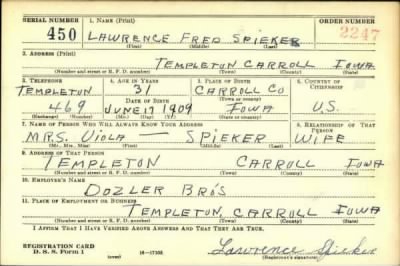 SERIAL NUMBER 1. NAME (Print) ORDER NUMBER
450 LAWRENCE FRED SPIEKER 2247
(First) (Middle) (Last)
2. ADDRESS (Print)
TEMPLETON CARROLL IOWA
(Number and street or R. F. D. number) (Town) (County) (State)
3. TELEPHONE 4. AGE IN YEARS 5. PLACE OF BIRTH 6. COUNTRY OF CITIZENSHIP
TEMPLETON 31 CARROLL CO
DATE OF BIRTH (Town or county)
469 JUNE 17 1909 IOWA U.S.
(Exchange) (Number) (Mo.) (Day) (Yr.) (State or country)
7. NAME OF PERSON WHO WILL ALWAYS KNOW YOUR ADDRESS 8. RELATIONSHIP OF THAT PERSON
MRS. VIOLA — SPIEKER WIFE
(Mr., Mrs., Miss) (First) (Middle) (Last)
9. ADDRESS OF THAT PERSON
TEMPLETON CARROLL IOWA
(Number and street or R. F. D. number) (Town) (County) (State)
10. EMPLOYER'S NAME
DOZLER BRO'S
11. PLACE OF EMPLOYMENT OR BUSINESS
TEMPLETON, CARROLL IOWA
(Number and street or R. F. D. number) (Town) (County) (State)
I AFFIRM THAT I HAVE VERIFIED ABOVE ANSWERS AND THAT THEY ARE TRUE.
REGISTRATION CARD
D. S. S. Form 1 (over) 16—17105 Lawrence Spieker
(Registrant's signature)